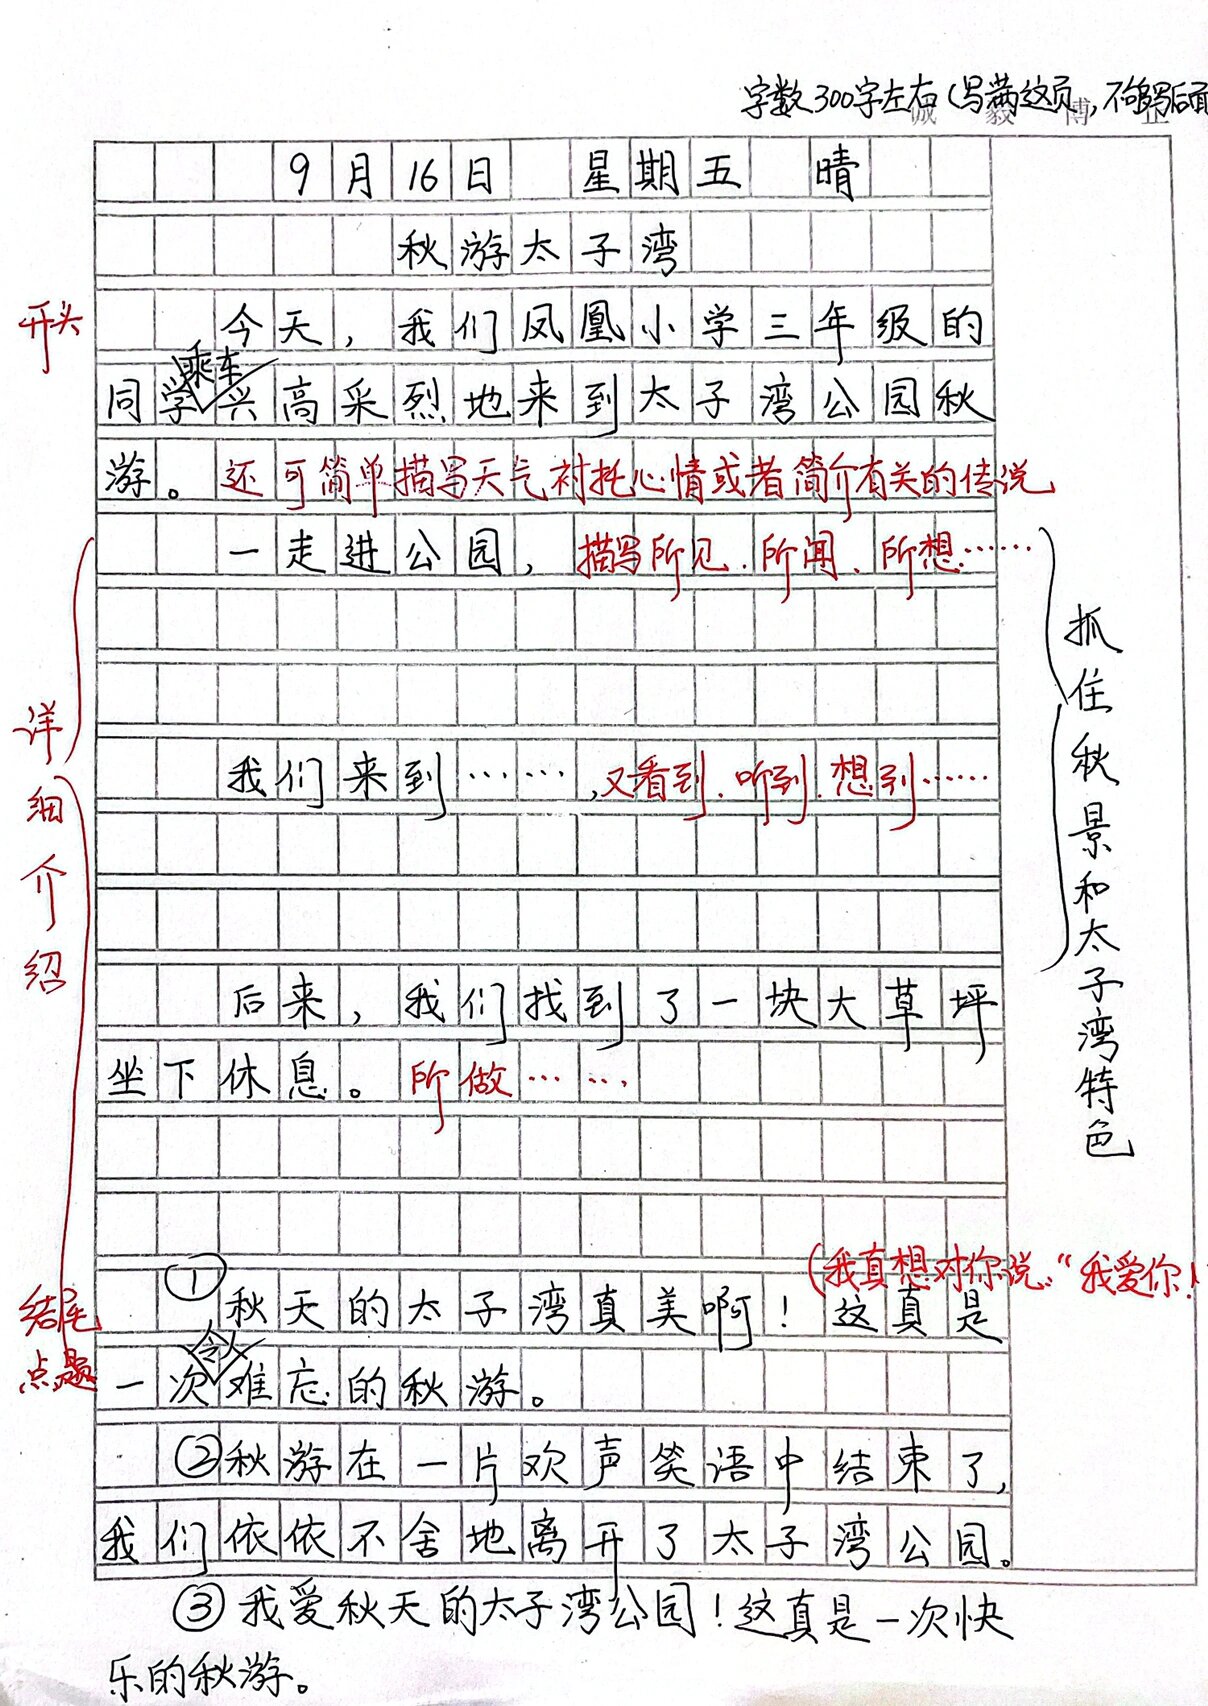 字数300字左右(写满这页,不够写后面
诚 毅 博
9月16日 星期五 晴
秋游太子湾
开头
今天,我们凤凰小学三年级的
乘车
同学兴高采烈地来到太子湾公园秋
游。还可简单描写天气衬托心情或者简介有关的传说
一走进公园,描写所见、所闻、所想……
详细介绍
抓住秋景和太子湾特色
我们来到……,又看到、听到、想到……
后来,我们找到了一块大草坪
坐下休息。所做……
(我真想对你说:“我爱你!
结尾点题
①秋天的太子湾真美啊!这真是
令人
一次难忘的秋游。
②秋游在一片欢声笑语中结束了,
我们依依不舍地离开了太子湾公园。
③我爱秋天的太子湾公园!这真是一次快
乐的秋游。